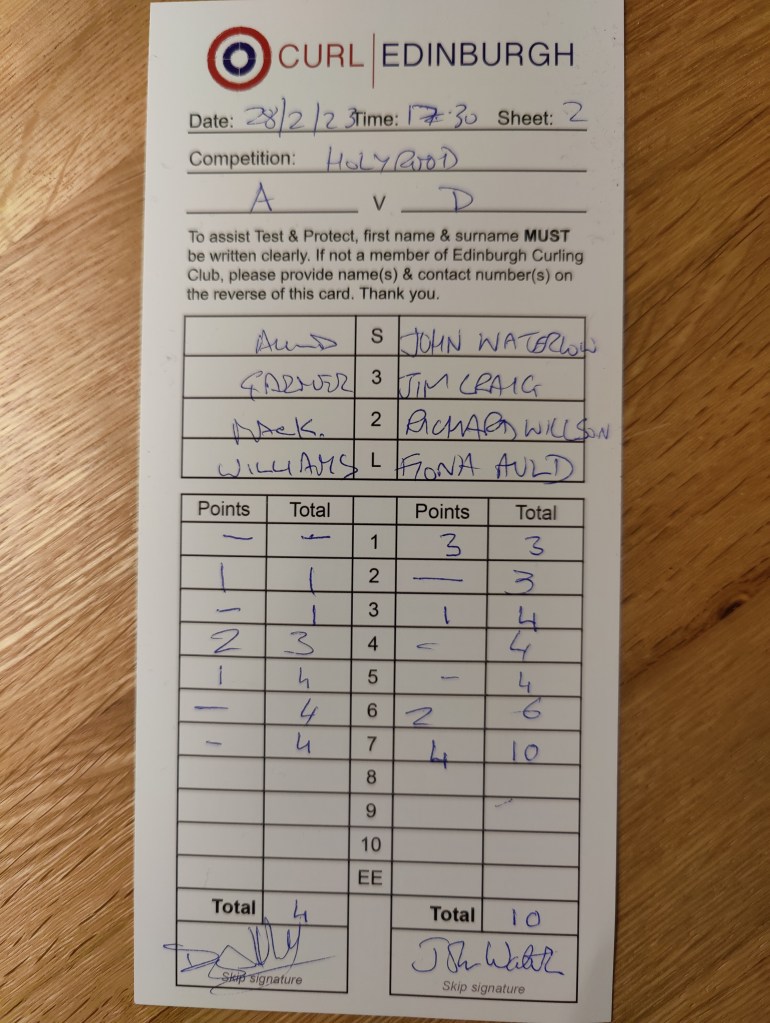 CURL | EDINBURGH
Date: 28/2/23 Time: 17:30 Sheet: 2
Competition: HOLYROOD
A V D
To assist Test & Protect, first name & surname MUST
be written clearly. If not a member of Edinburgh Curling
Club, please provide name(s) & contact number(s) on
the reverse of this card. Thank you.
AULD S JOHN WATERLOW
GARNER 3 JIM CRAIG
MACK. 2 RICHARD WILLSON
WILLIAMS L FIONA AULD
Points Total Points Total
- - 1 3 3
1 1 2 - 3
- 1 3 1 4
2 3 4 - 4
1 4 5 - 4
- 4 6 2 6
- 4 7 4 10
8
9
10
EE
Total 4 Total 10
John
Skip signature Skip signature